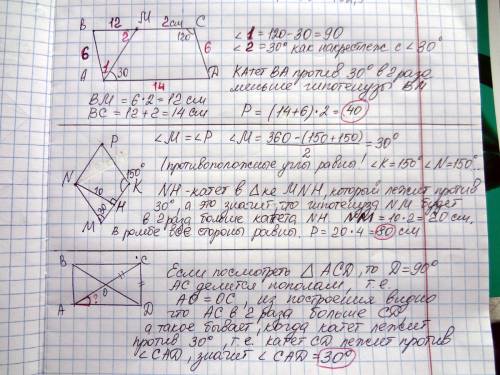 B 12 M 2см C
120°
∠1 = 120-30=90
6 2 6
∠2 = 30° как накрестлеж. с ∠30°
A 1 30 D
14
Катет BA против 30° в 2 раза
меньше гипотенузы BM
BM = 6·2 = 12 см
BC = 12+2 = 14 см
P = (14+6)·2 = 40
P
∠M = ∠P ∠M = 360-(150+150) = 30°
2
150°
(противоположные углы равны) ∠K=150° ∠N=150°
N 10 K
H
30
M
NH - катет в Δке MNH, который лежит против
30°, а это значит, что гипотенуза NM будет
в 2 раза больше катета NH. NM = 10·2 = 20 см.
В ромбе все стороны равны. P = 20·4 = 80 см
B C
O
A ? D
Если посмотреть Δ ACD, то D=90°
AC делится пополам, т.е.
AO = OC, из построения видно
что AC в 2 раза больше CD,
а такое бывает, когда катет лежит
против 30°, т.е. катет CD лежит против
∠CAD, значит ∠CAD = 30°